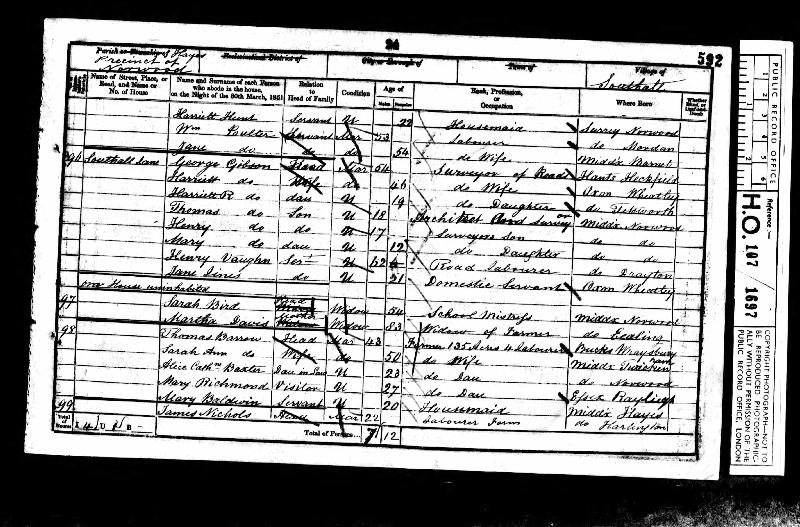 24
592
Parish or Township of Hayes
Precinct of Norwood
Ecclesiastical District of
City or Borough of
Town of
Village of
Southall
Name of Street, Place, or Road, and Name or No. of House
Name and Surname of each Person who abode in the house, on the Night of the 30th March, 1851
Relation to Head of Family
Condition
Age of
Males
Females
Rank, Profession, or Occupation
Where Born
Whether Blind, or Deaf-and-Dumb
Harriett Hunt Servant U 22 Housemaid Surrey Norwood
Wm Servant Mar 53 Labourer do Mordan
Jane do do do 54 do Wife Middx Barnet
96 Southall Lane George Gibson Head Mar 54 Surveyor of Roads Hants Heckfield
Harriett do Wife do 46 do Wife Oxon Wheatley
Harriett R do dau U 19 do Daughter do
Thomas do Son U 18 Architect and Surveyor Middx Norwood
Henry do do U 17 Surveyors Son do do
Mary do dau U 12 do Daughter do do
Henry Vaughn Sert U 52 Road Labourer do Drayton
Jane do U 21 Domestic Servant Oxon Wheatley
one House uninhabited
97 Sarah Bird Head Widow 54 School Mistress Middx Norwood
Martha Davis Mother Widow 83 Widow of Farmer do Ealing
98 Thomas Barrow Head Mar 43 Farmer 135 Acres 4 Labourers Bucks Wraysbury
Sarah Ann do Wife do 50 do Wife Middx
Alice Cathn Baxter Dau in Law U 23 do Dau do Norwood
Mary Richmond Visitor U 27 do Dau Essex Rayleigh
Mary Baldwin Servant U 20 Housemaid Middx Hayes
99 James Nichols Head Mar 22 Labourer Farm do Harlington
Total of Houses I 4 U 1 B -
Total of Persons 7 12
PUBLIC RECORD OFFICE
1 2 3 4 5 6
1 2
Reference :-
H.O. 107 / 1697
COPYRIGHT PHOTOGRAPH—NOT TO BE REPRODUCED PHOTOGRAPHICALLY WITHOUT PERMISSION OF THE PUBLIC RECORD OFFICE, LONDON